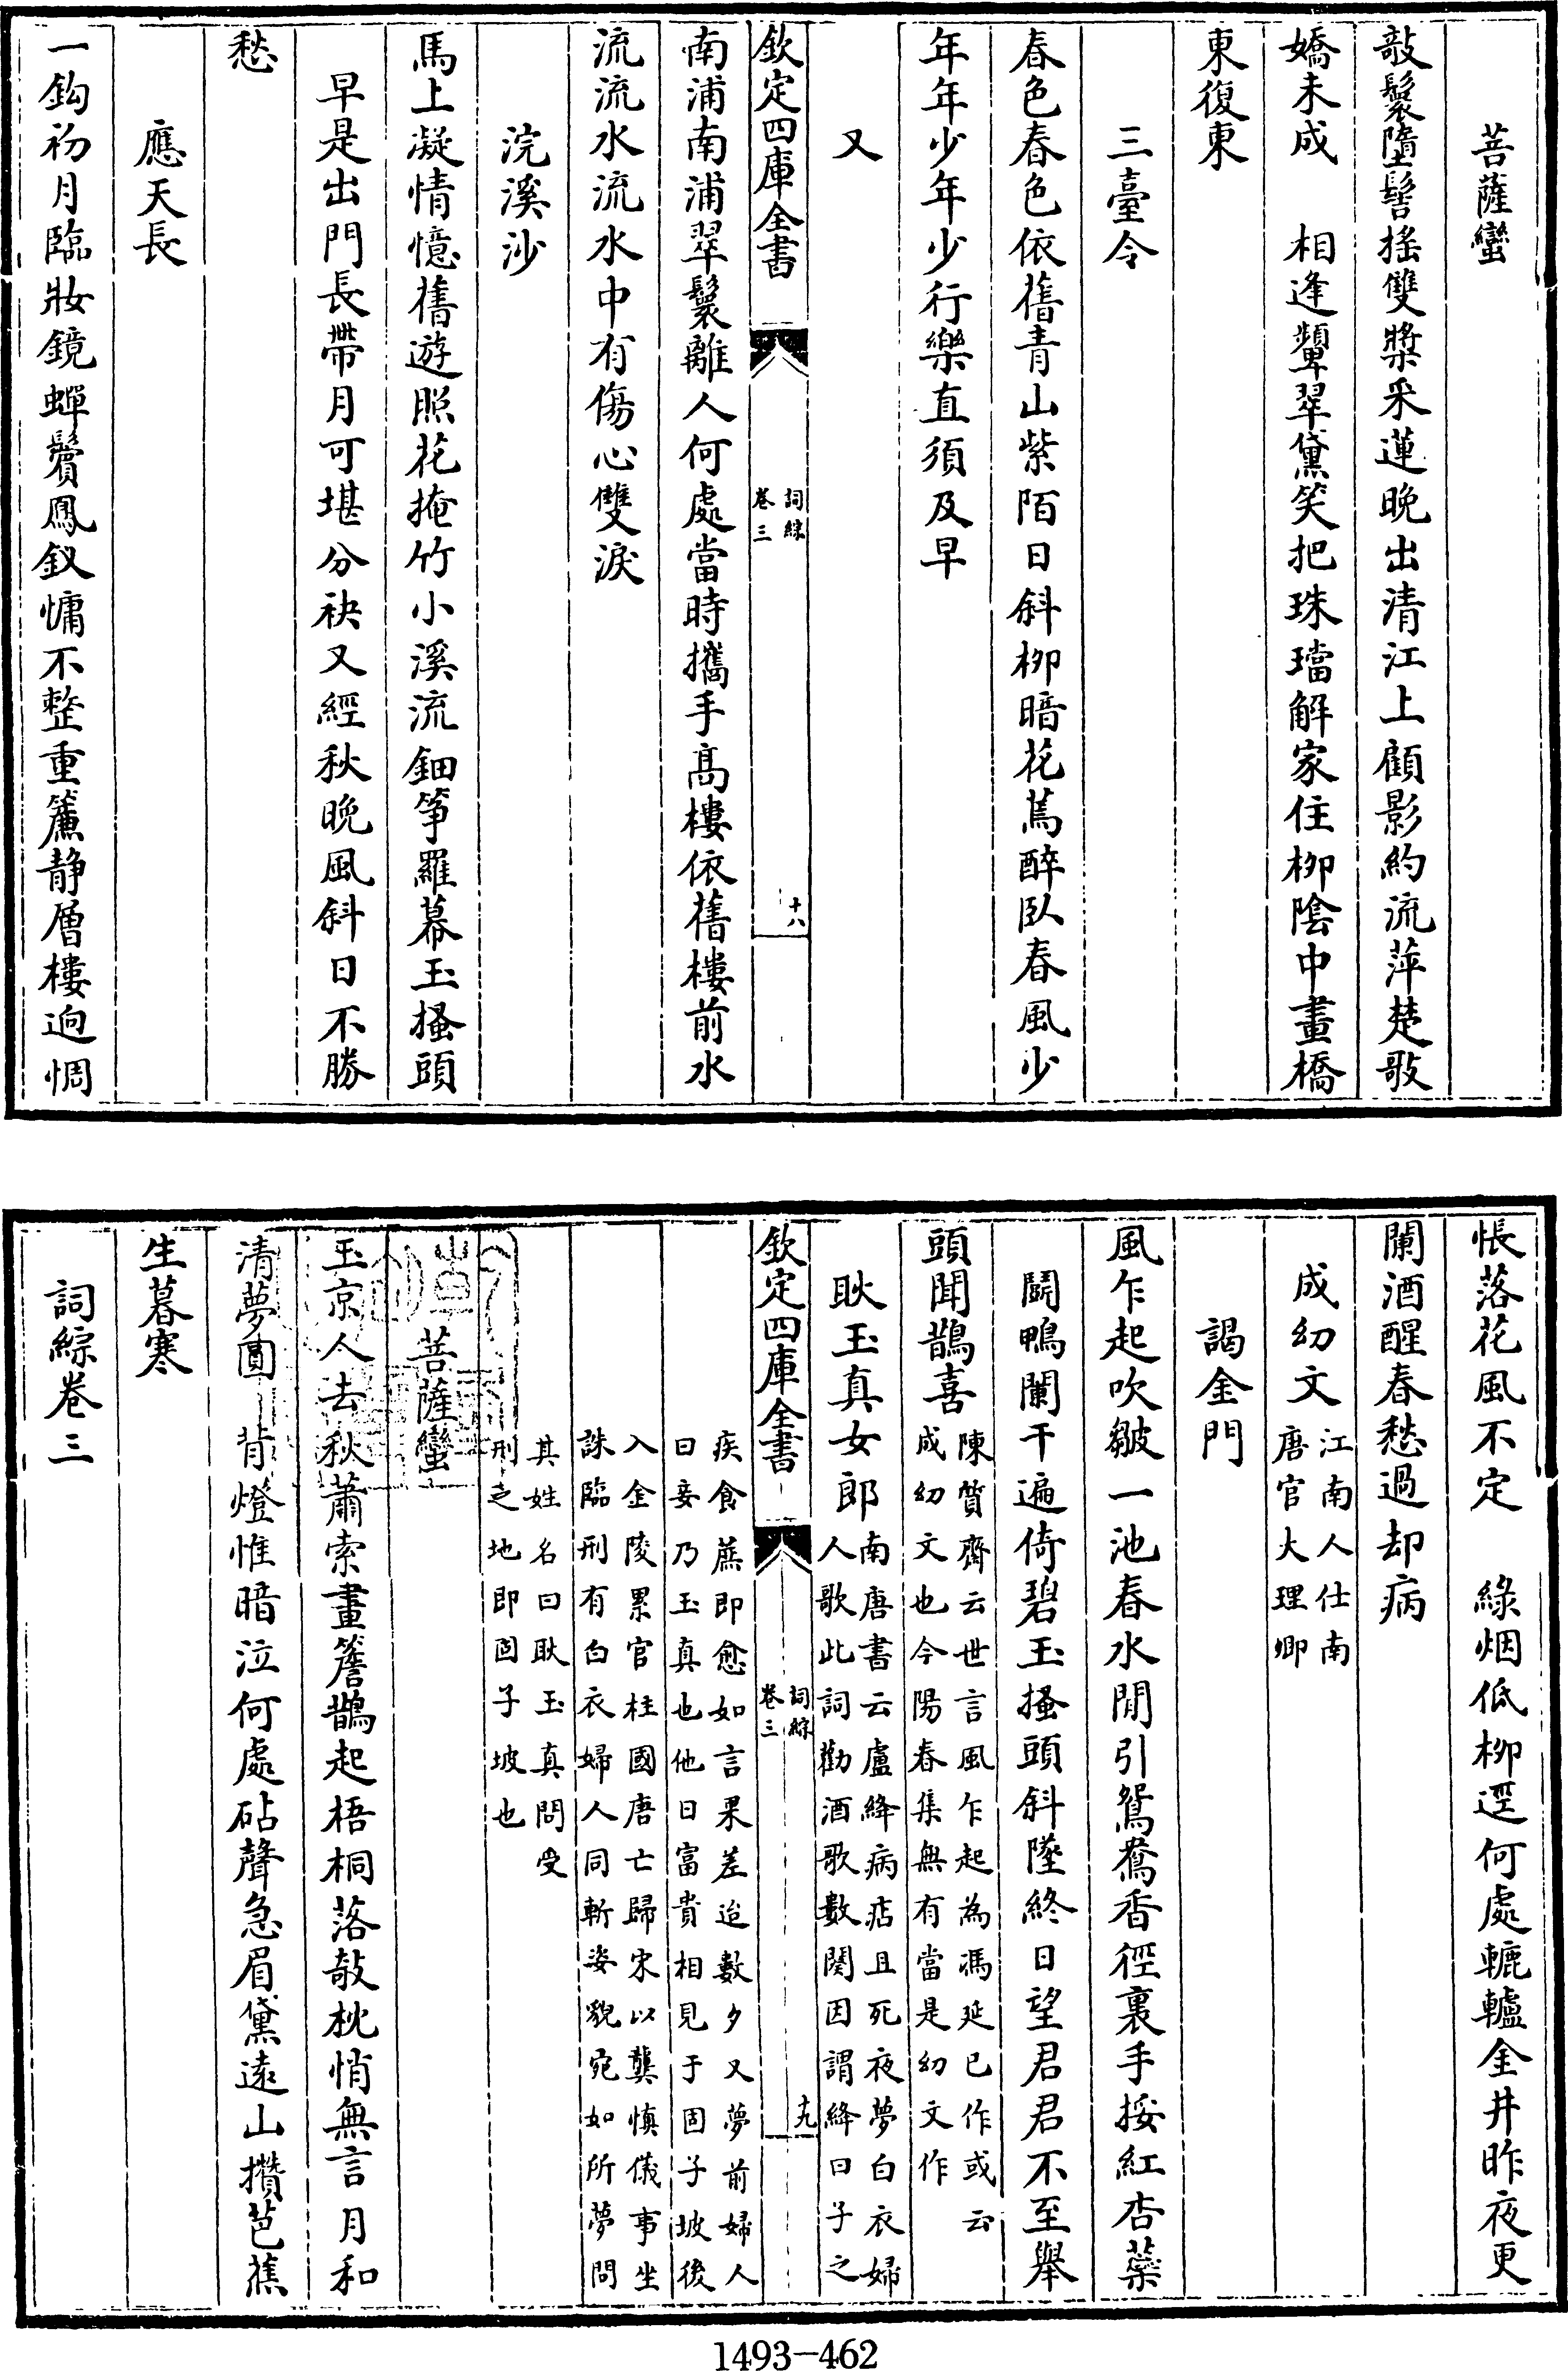 菩薩蠻
敧鬟墮髻搖雙槳采蓮晚出清江上顧影約流萍楚歌
嬌未成　相逢顰翠黛笑把珠璫解家住柳陰中畫橋
東復東
三臺令
春色春色依舊青山紫陌日斜柳暗花蔫醉臥春風少
年年少年年少行樂直須及早
又
欽定四庫全書
詞綜
卷三
十八
南浦南浦翠鬟離人何處當時攜手高樓依舊樓前水
流流水流水中有傷心雙淚
浣溪沙
馬上凝情憶舊遊照花掩竹小溪流鈿箏羅幕玉搔頭
早是出門長帶月可堪分袂又經秋晚風斜日不勝
愁
應天長
一鈎初月臨妝鏡蟬鬢鳳釵慵不整重簾静層樓迥惆
悵落花風不定　綠烟低柳逕何處轆轤金井昨夜更
闌酒醒春愁過却病
成幼文
江南人仕南
唐官大理卿
謁金門
風乍起吹皺一池春水閒引鴛鴦香徑裏手挼紅杏蘂
鬬鴨闌干遍倚碧玉搔頭斜墜終日望君君不至舉
頭聞鵲喜
陳質齋云世言風乍起為馮延巳作或云
成幼文也今陽春集無有當是幼文作
耿玉真女郎
南唐書云盧絳病痁且死夜夢白衣婦
人歌此詞勸酒歌數闋因謂絳曰子之
欽定四庫全書
詞綜
卷三
十九
疾食蔗即愈如言果差迨數夕又夢前婦人
曰妾乃玉真也他日富貴相見于固子坡後
入金陵累官柱國唐亡歸宋以龔慎儀事坐
誅臨刑有白衣婦人同斬姿貌宛如所夢問
其姓名曰耿玉真問受
刑之地即固子坡也
菩薩蠻
玉京人去秋蕭索畫簷鵲起梧桐落敧枕悄無言月和
清夢圓　背燈惟暗泣何處砧聲急眉黛遠山攢芭蕉
生暮寒
詞綜卷三
1493-462